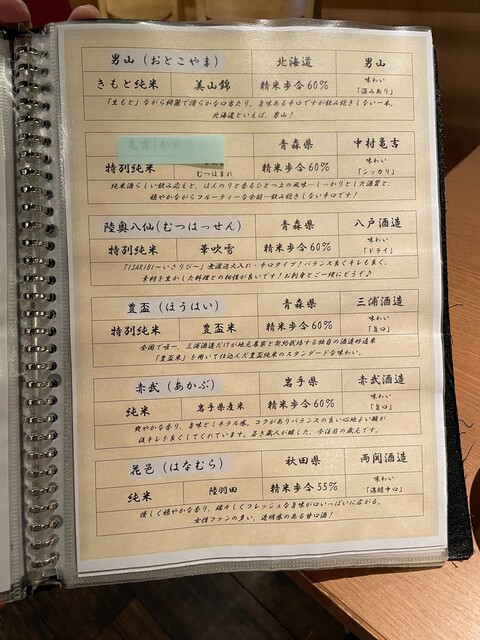 男山（おとこやま） 北海道 男山
きもと純米 美山錦 精米歩合60% 味わい「深みあり」
「生もと」ながら綺麗で滑らかな口当たり。旨味ある辛口ですが飲み飽きしない一本。
北海道といえば、男山！
青森県 中村亀吉
特別純米 むつほまれ 精米歩合60% 味わい「シッカリ」
純米酒らしい飲み応えと、ほんのりと香るひと上の風味…しっかりとした酒質と、
穏やかながらフルーティーな余韻…飲み飽きしない辛口です！
陸奥八仙(むつはっせん) 青森県 八戸酒造
特別純米 華吹雪 精米歩合60% 味わい「ドライ」
「ISARIBI～いさりび～」無濾過火入れ・辛口タイプ！バランス良くキレも良く、
素材を生かした料理との相性が良いです！お刺身とご一緒にどうぞ♪
豊盃（ほうはい） 青森県 三浦酒造
特別純米 豊盃米 精米歩合60% 味わい「旨口」
全国で唯一、三浦酒造だけが地元農家と契約栽培する独自の酒造好適米
「豊盃米」を用いて仕込んだ豊盃純米のスタンダードな味わい。
赤武（あかぶ） 岩手県 赤武酒造
純米 岩手県産米 精米歩合60% 味わい「旨口」
爽やかな香り、旨味とミネラル感、コクがありバランスの良い心地よい酸が
後キレを良くしてくれています。若き蔵人が醸した、今注目の蔵元です。
花邑（はなむら） 秋田県 両関酒造
純米 陸羽田 精米歩合55% 味わい「濃醇辛口」
優しく穏やかな香り、瑞々しくフレッシュな旨味が口いっぱいに広がる。
女性ファンの多い、透明感のある甘口酒！